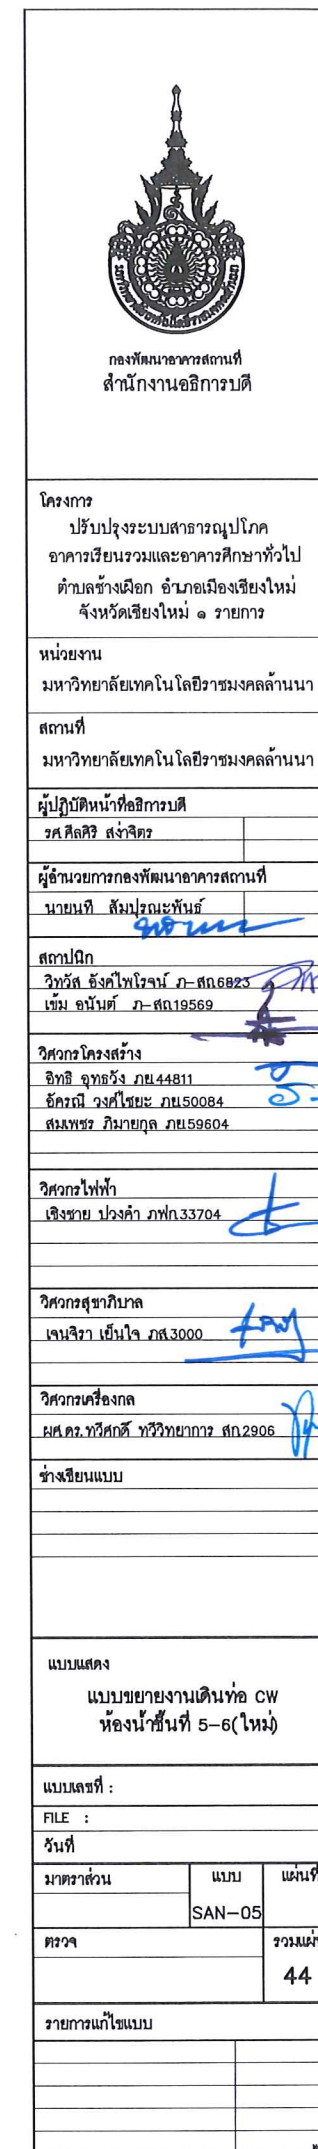 กองพัฒนาอาคารสถานที่
สำนักงานอธิการบดี
โครงการ
ปรับปรุงระบบสาธารณูปโภค
อาคารเรียนรวมและอาคารศึกษาทั่วไป
ตำบลช้างเผือก อำเภอเมืองเชียงใหม่
จังหวัดเชียงใหม่ ๑ รายการ
หน่วยงาน
มหาวิทยาลัยเทคโนโลยีราชมงคลล้านนา
สถานที่
มหาวิทยาลัยเทคโนโลยีราชมงคลล้านนา
ผู้ปฏิบัติหน้าที่อธิการบดี
รศ.ศีลศิริ สง่าจิตร
ผู้อำนวยการกองพัฒนาอาคารสถานที่
นายนที สัมปุรณะพันธ์
สถาปนิก
วิทวัส อังค์ไพโรจน์ ภ-สถ.6823
เข้ม อนันต์ ภ-สถ.19569
วิศวกรโครงสร้าง
อิทธิ อุทธวัง ภย.44811
อัครณี วงศ์ไชยะ ภย.50084
สมเพชร ภิมายกุล ภย.59604
วิศวกรไฟฟ้า
เชิงชาย ปวงคำ ภฟก.33704
วิศวกรสุขาภิบาล
เจนจิรา เย็นใจ ภส.3000
วิศวกรเครื่องกล
ผศ.ดร.ทวีศักดิ์ ทวีวิทยาการ สก.2906
ช่างเขียนแบบ
แบบแสดง
แบบขยายงานเดินท่อ CW
ห้องน้ำชั้นที่ 5-6(ใหม่)
แบบเลขที่ :
FILE :
วันที่
มาตราส่วน แบบ แผ่นที่
SAN-05
ตรวจ รวมแผ่น
44
รายการแก้ไขแบบ